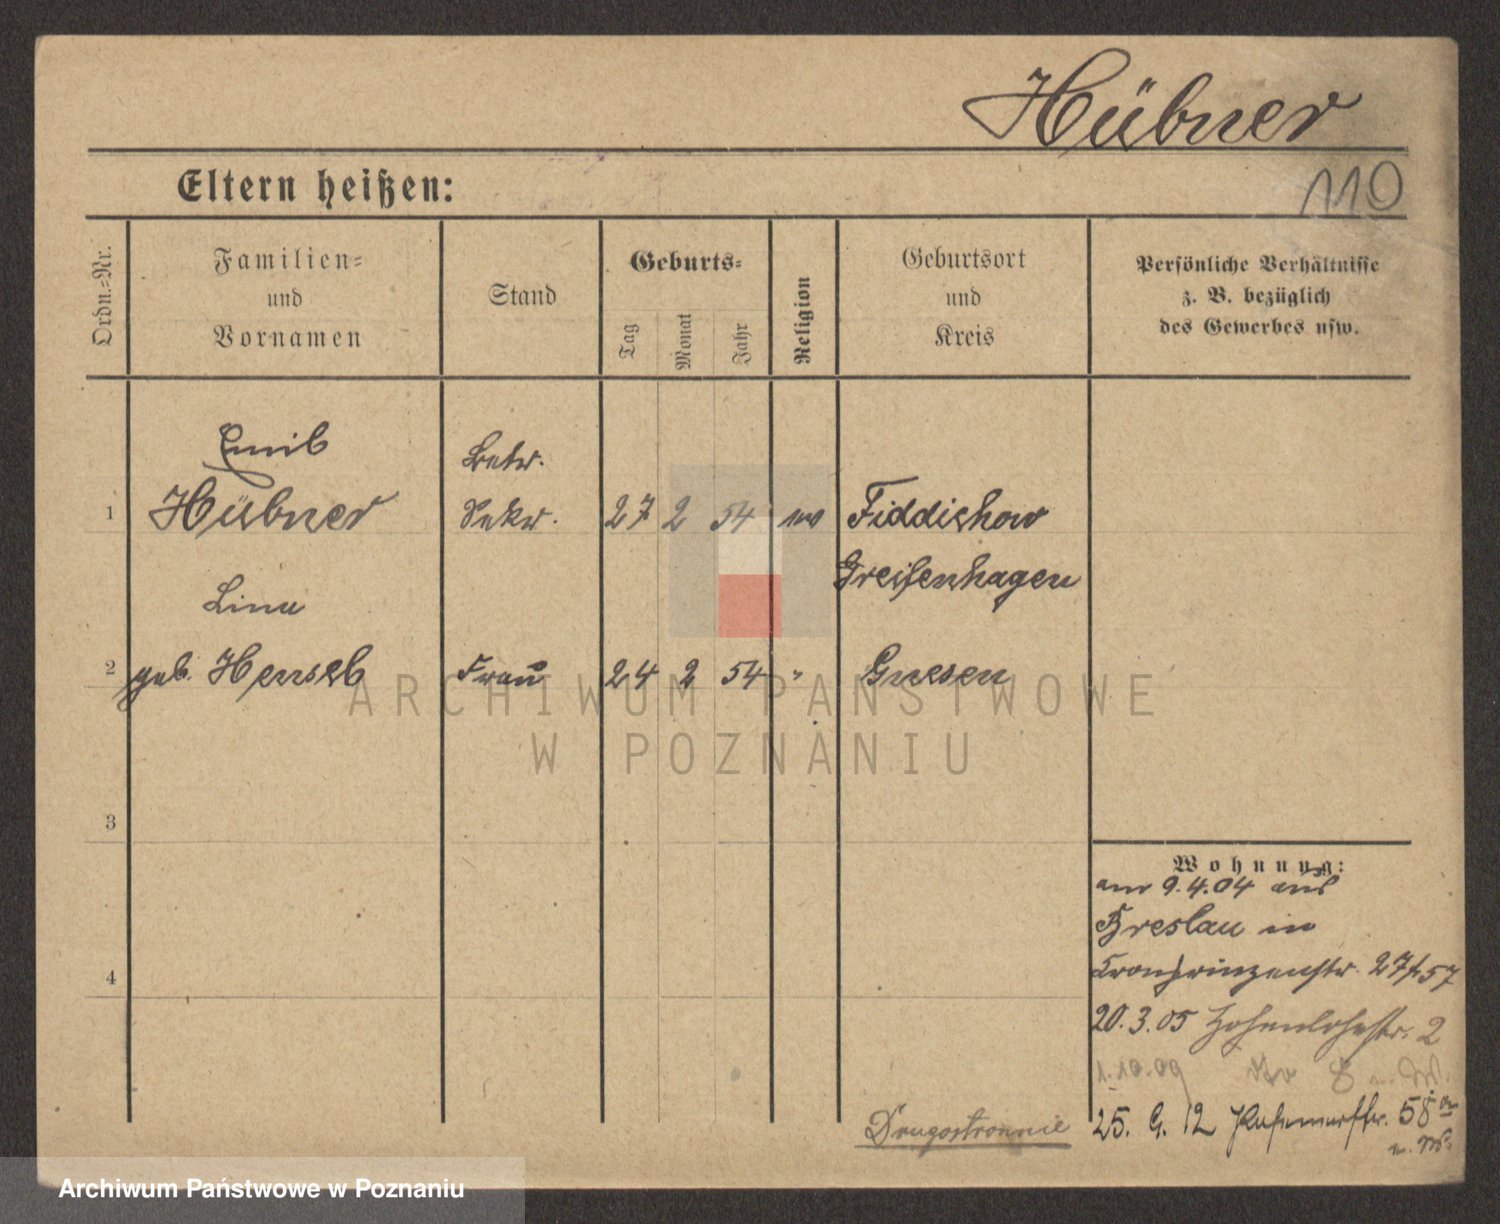 Hübner
Eltern heißen:
110
Ordn.=Nr.
Familien=
und
Vornamen
Stand
Geburts=
Tag
Monat
Jahr
Religion
Geburtsort
und
Kreis
Persönliche Verhältnisse
z. B. bezüglich
des Gewerbes usw.
Emil
1 Hübner
Sekr. 27 2 54 ev Fiddichow
Greifenhagen
Lina
2 geb. Hensel Frau 24 2 54 " Gnesen
ARCHIWUM PAŃSTWOWE
W POZNANIU
3
4
Wohnung:
am 9.4.04 aus
Breslau in
Kronprinzenstr. 27
20.3.05 Hohenlohestr. 2
1.10.09
25. 9. 12 58
Drugostronnie
Archiwum Państwowe w Poznaniu